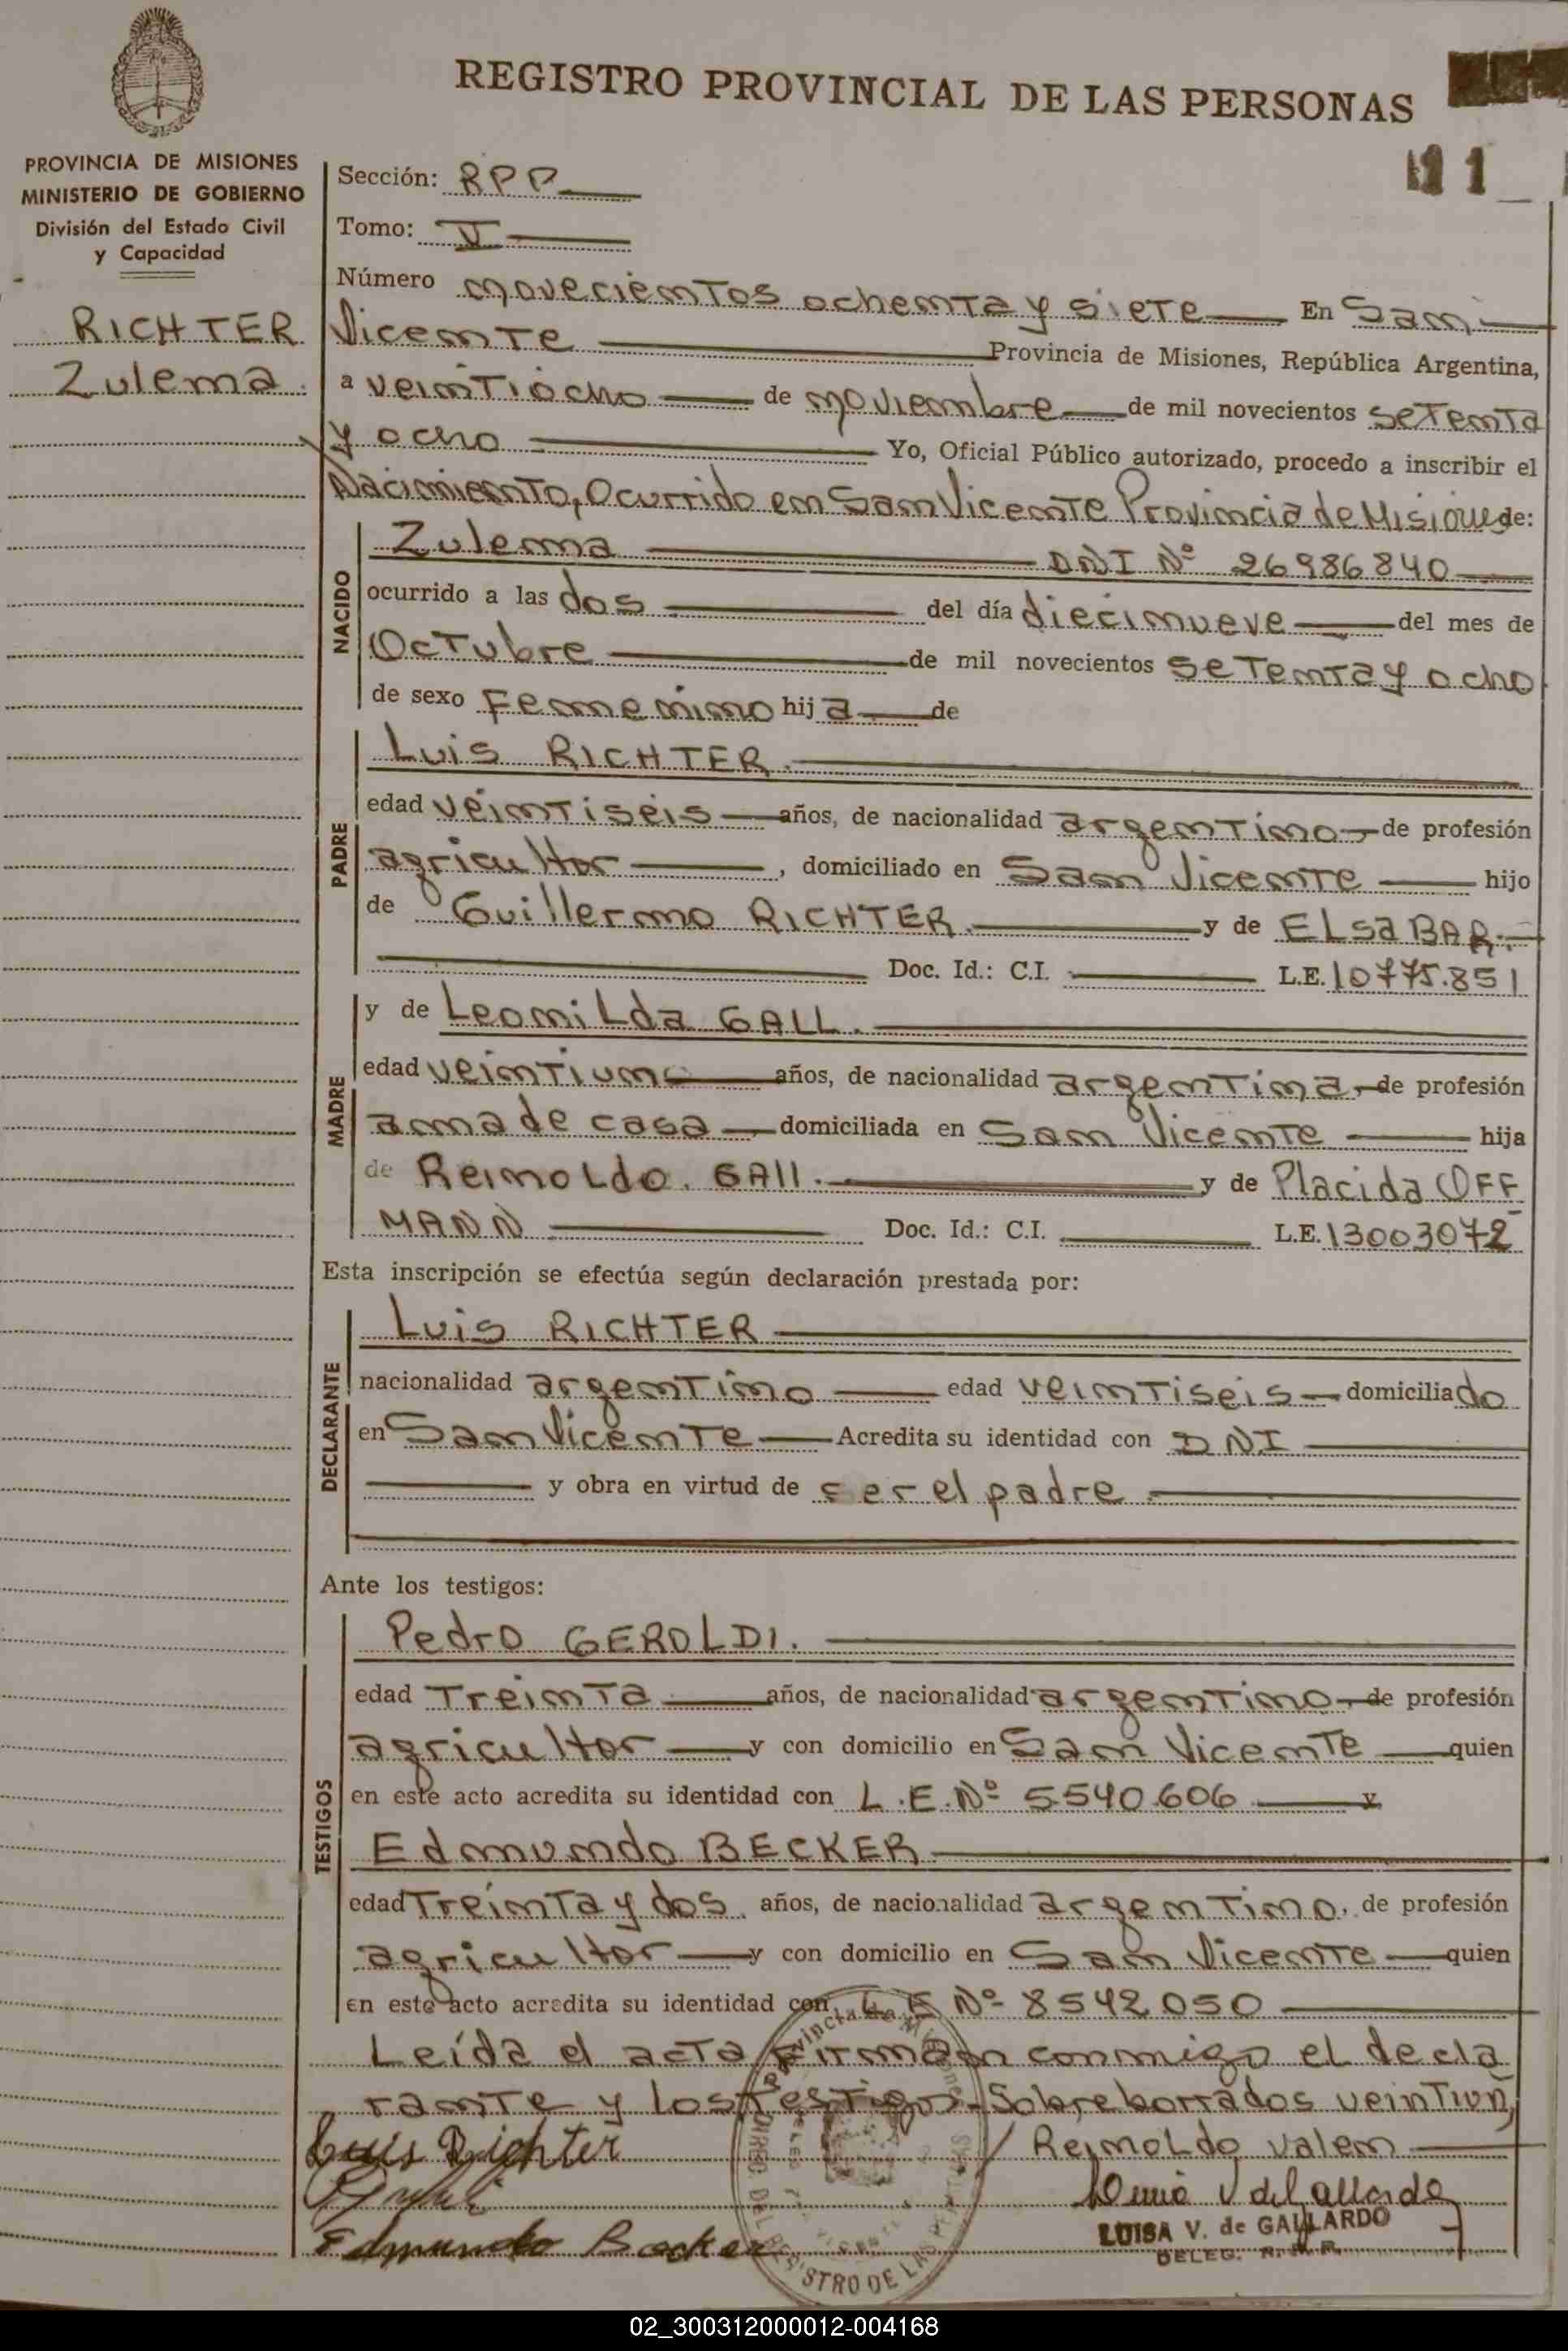 REGISTRO PROVINCIAL DE LAS PERSONAS
PROVINCIA DE MISIONES
MINISTERIO DE GOBIERNO
División del Estado Civil
y Capacidad
RICHTER
Zulema
Sección: RPP
Tomo: V
Número novecientos ochenta y siete En San
Vicente Provincia de Misiones, República Argentina,
a veintiocho de noviembre de mil novecientos setenta
y ocho Yo, Oficial Público autorizado, procedo a inscribir el
Nacimiento, Ocurrido en San Vicente Provincia de Misiones de:
NACIDO
Zulema DNI Nº 26986840
ocurrido a las dos del día diecinueve del mes de
Octubre de mil novecientos setenta y ocho
de sexo Femenino hija de
PADRE
Luis RICHTER.
edad veintiseis años, de nacionalidad argentino de profesión
agricultor, domiciliado en San Vicente hijo
de Guillermo RICHTER. y de ELsa BAR.
Doc. Id.: C.I. L.E. 10775.851
MADRE
y de Leonilda GALL.
edad veintiuno años, de nacionalidad argentina, de profesión
ama de casa domiciliada en San Vicente hija
de Reinoldo. GAll. y de Placida OFF
MANN Doc. Id.: C.I. L.E. 13003072
Esta inscripción se efectúa según declaración prestada por:
DECLARANTE
Luis RICHTER
nacionalidad argentino edad veintiseis domiciliado
en San Vicente Acredita su identidad con DNI
y obra en virtud de ser el padre.
Ante los testigos:
TESTIGOS
Pedro GEROLDI.
edad Treinta años, de nacionalidad argentino, de profesión
agricultor y con domicilio en San Vicente quien
en este acto acredita su identidad con L.E. Nº 5540606 y
Edmundo BECKER
edad Treinta y dos años, de nacionalidad argentino, de profesión
agricultor y con domicilio en San Vicente quien
en este acto acredita su identidad con L E Nº 8542050
Leída el acta firman conmigo el decla
rante y los testigos. Sobreborrados veintiun,
Luis Richter / Reinoldo valen
Edmundo Becker
LUISA V. de GALLARDO
DELEG. R. P. P.
02_300312000012-004168